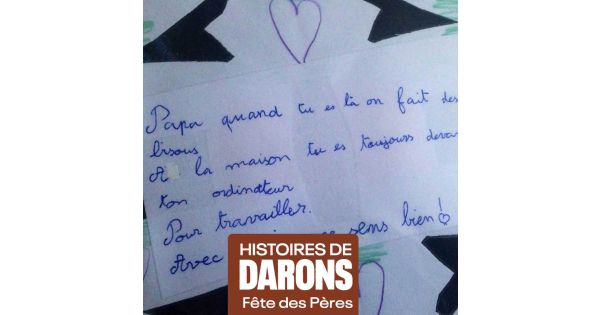 Papa quand tu es là on fait des
bisous
A la maison tu es toujours devan
ton ordinateur
Pour travailler.
Avec sens bien!
HISTOIRES DE
DARONS
Fête des Pères